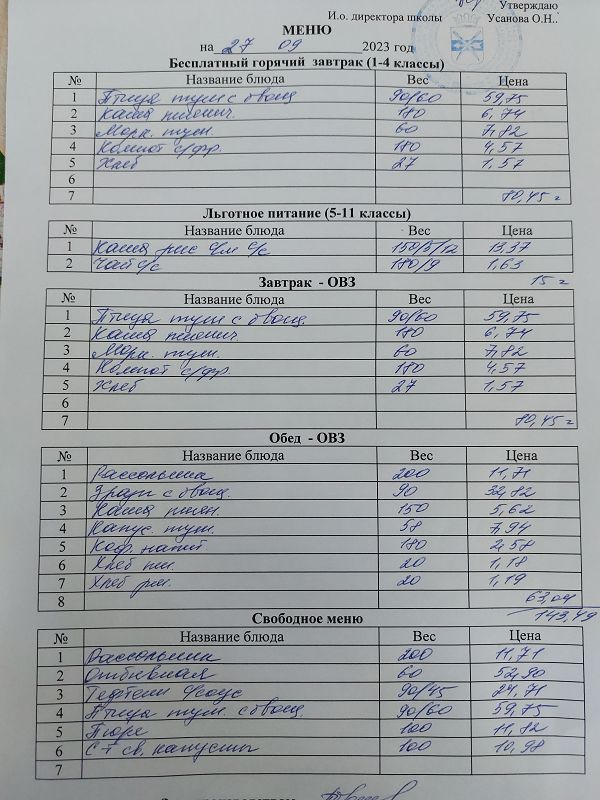 Утверждаю
И.о. директора школы Усанова О.Н.
МЕНЮ
на 27 09 2023 год
Бесплатный горячий завтрак (1-4 классы)
№ Название блюда Вес Цена
1 Птица туш с овощ 90/60 59,75
2 Каша пшенич. 180 6,74
3 Морк. туш. 60 7,82
4 Компот с/фр. 180 4,57
5 Хлеб 27 1,57
6
7 80,45
Льготное питание (5-11 классы)
№ Название блюда Вес Цена
1 Каша рис с/м с/с 150/5/12 13,37
2 Чай с/с 180/9 1,63
15
Завтрак - ОВЗ
№ Название блюда Вес Цена
1 Птица туш с овощ. 90/60 59,75
2 Каша пшенич 180 6,74
3 Морк. туш. 60 7,82
4 Компот с/фр. 180 4,57
5 Хлеб 27 1,57
6
7 80,45
Обед - ОВЗ
№ Название блюда Вес Цена
1 Рассольник 200 11,71
2 Зразы с овощ. 90 32,82
3 Каша пшен. 150 5,62
4 Капус. туш. 58 7,94
5 Коф. напит 180 2,58
6 Хлеб пш. 20 1,18
7 Хлеб рж. 20 1,19
8 63,04
143,49
Свободное меню
№ Название блюда Вес Цена
1 Рассольник 200 11,71
2 Отбивная 60 52,90
3 Тефтели 90/45 24,71
4 Птица туш. с овощ. 90/60 59,75
5 Пюре 100 11,82
6 С-т св. капусты 100 10,98
7